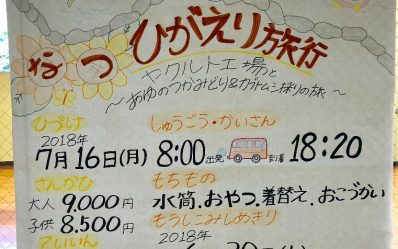 なつ ひがえり旅行
ヤクルト工場と
～あゆのつかみどり&カブトムシ採りの旅～
ひづけ
しゅうごう・かいさん
2018年
7月16日(月) 8:00 出発 到着 18:20
さんかひ
もちもの
大人 9,000円
水筒.おやつ.着替え.おこづかい
子供 8,500円
もうしこみしめきり
ていいん
2018年